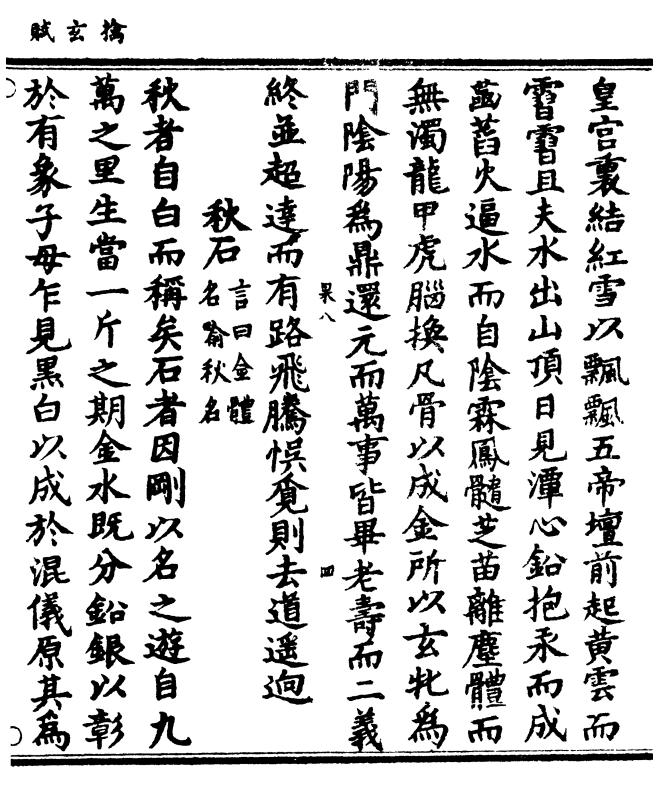 擒玄賦
皇宮裏結紅雪以飄飄五帝壇前起黃雲而
霫霫且夫水出山頂日見潭心鉛抱汞而成
菑火逼水而自陰霖鳳髓芝苗離塵體而
無濁龍甲虎腦換凡骨以成金所以玄牝爲
門陰陽爲鼎還元而萬事皆畢老壽而二義
果八
四
終並超達而有路飛騰悞覔則去道遥逈
秋石言曰金體名喻秋名
秋者自白而稱矣石者因剛以名之遊自九
萬之里生當一斤之期金水既分鉛銀以彰
於有象子母乍見黑白以成於混儀原其爲